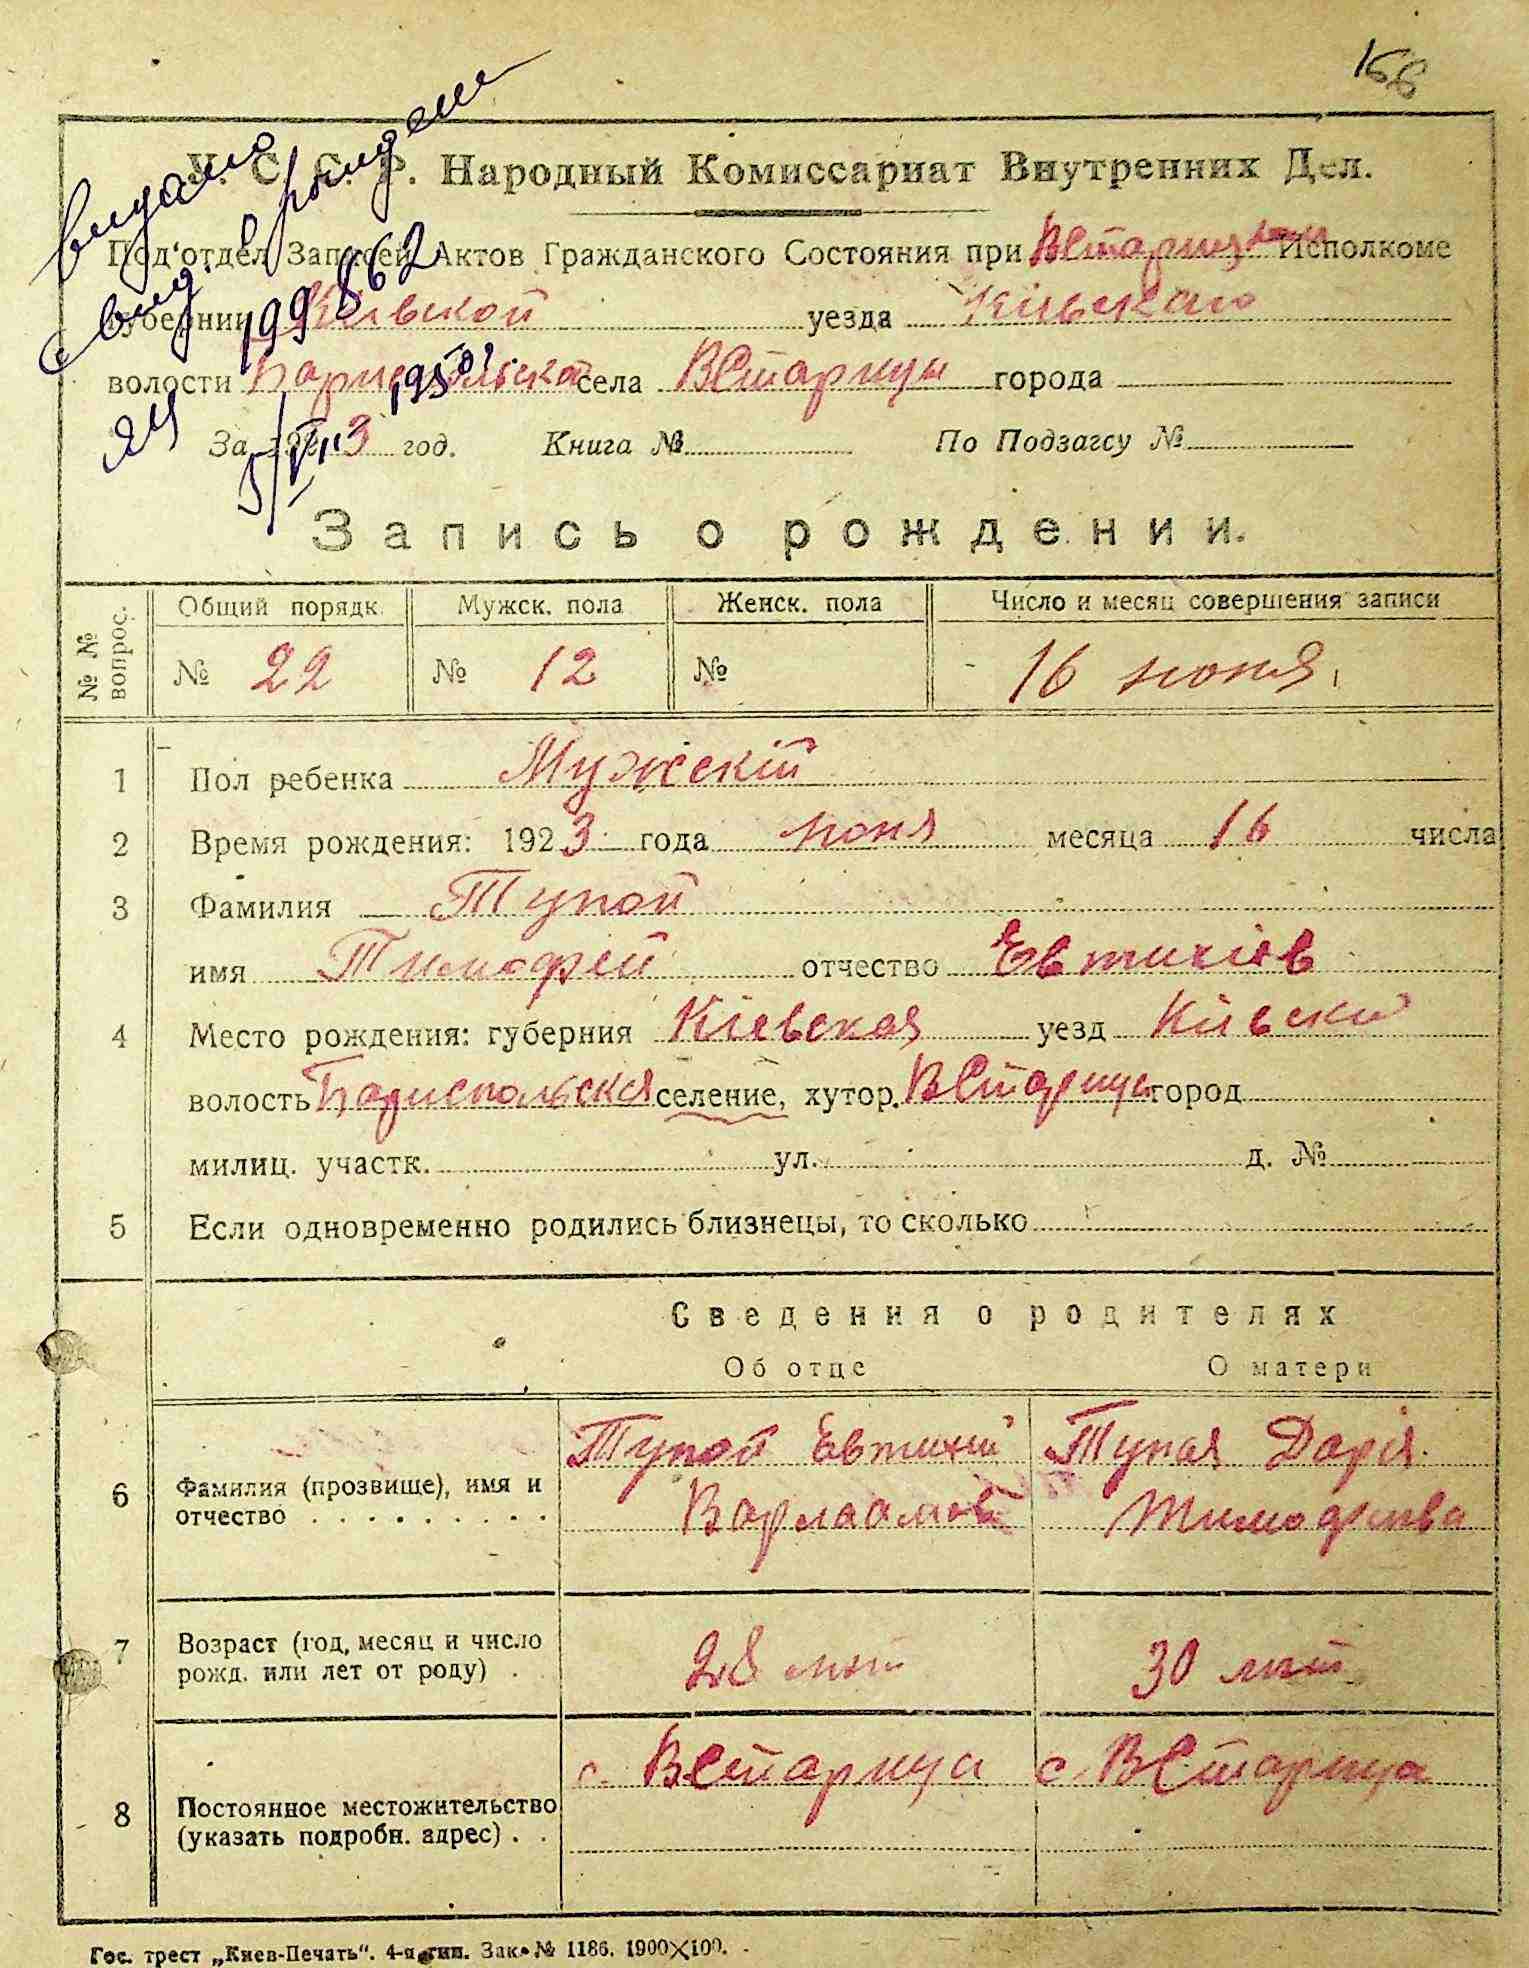 158
У. С. С. Р. Народный Комиссариат Внутренних Дел.
видано
свид. о рожден
199862
ЯЧ
5/VII 1950 г.
Под'отдел Записей Актов Гражданского Состояния при ВСтарицком Исполкоме
губернии Кіевской уезда Кіевскаго
волости Бориспольской села ВСтарицы города
За 1923 год. Книга № По Подзагсу №
Запись о рождении.
№ № вопрос. Общий порядк. Мужск. пола Женск. пола Число и месяц совершения записи
№ 22 № 12 № 16 июня
1 Пол ребенка Мужскій
2 Время рождения: 1923 года июня месяца 16 числа
3 Фамилия Тупой
имя Тимофей отчество Евтихіев
4 Место рождения: губерния Кіевская уезд Кіевскій
волость Бориспольская селение, хутор. ВСтарица город
милиц. участк. ул. д. №
5 Если одновременно родились близнецы, то сколько
Сведения о родителях
Об отце О матери
6 Фамилия (прозвище), имя и отчество Тупой Евтихий Варлаамов Тупая Дарія Тимофеева
7 Возраст (год, месяц и число рожд. или лет от роду) 28 лет 30 лет
8 Постоянное местожительство (указать подробн. адрес) с. ВСтарица с. ВСтарица
Гос. трест „Киев-Печать“. 4-я гип. Зак. № 1186. 1900×100.